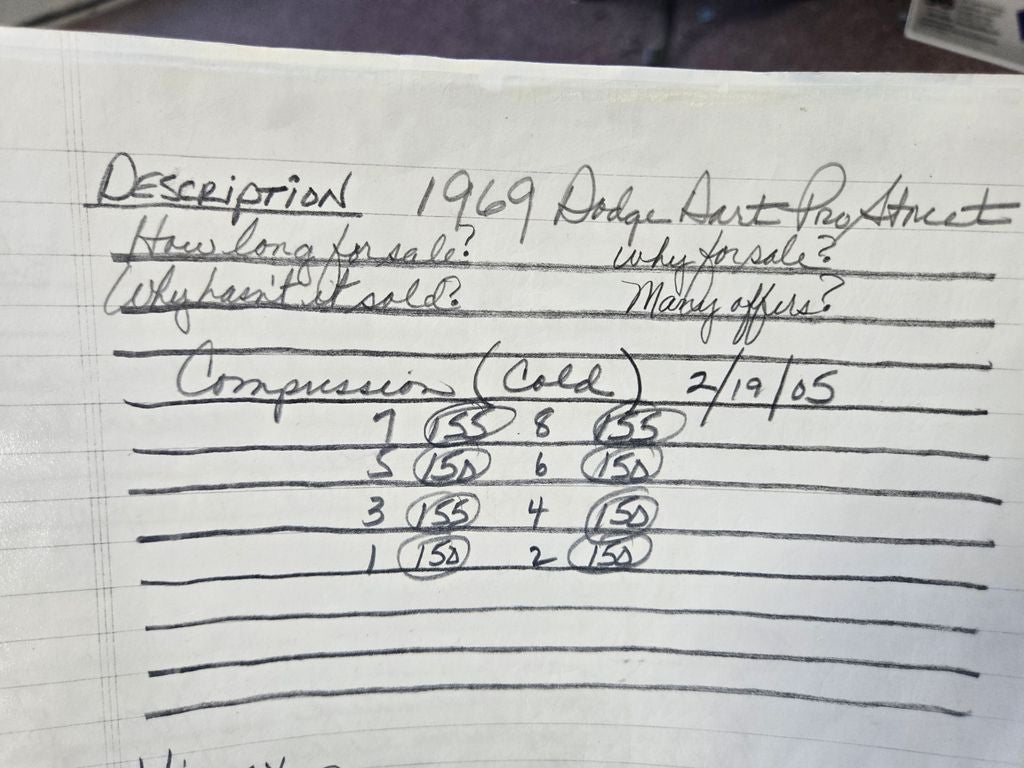 DESCRIPTION 1969 Dodge Dart Pro Street
How long for sale? Why for sale?
Why hasn't it sold? Many offers?
Compression (Cold) 2/19/05
7 155 8 155
5 150 6 150
3 155 4 150
1 150 2 150